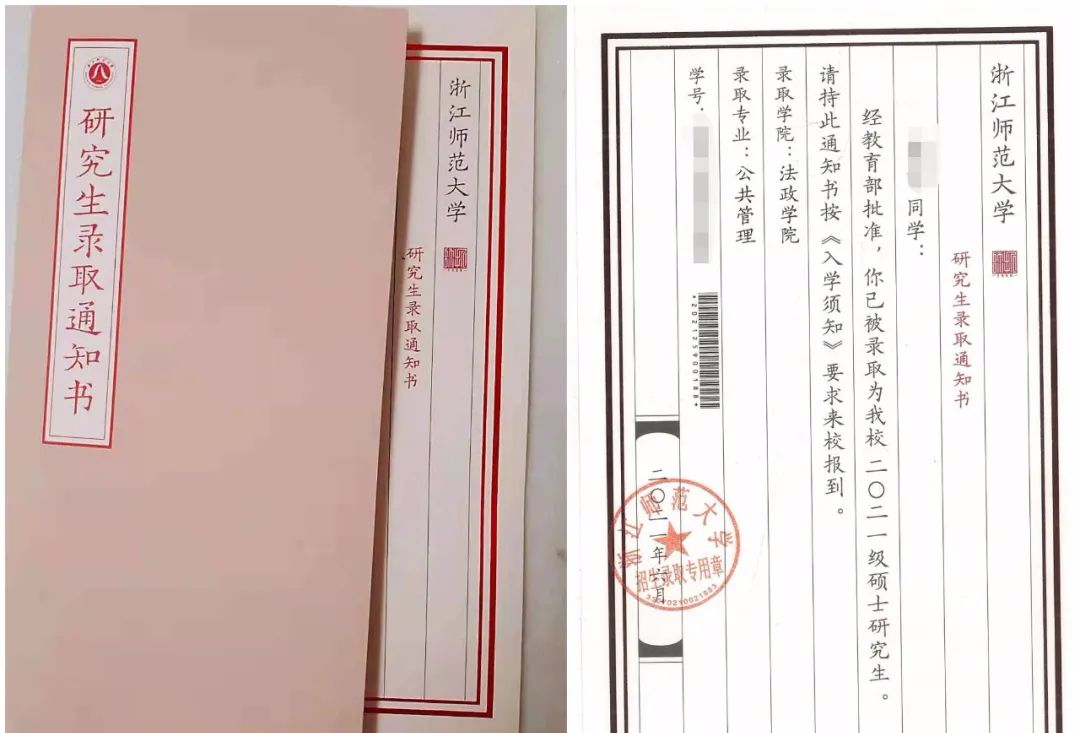 研究生录取通知书
浙江师范大学
研究生录取通知书
浙江师范大学
研究生录取通知书
同学：
经教育部批准，你已被录取为我校二〇二一级硕士研究生。
请持此通知书按《入学须知》要求来校报到。
录取学院：法政学院
录取专业：公共管理
学号：
*202125900588*
二〇二一年六月
浙江师范大学
招生录取专用章